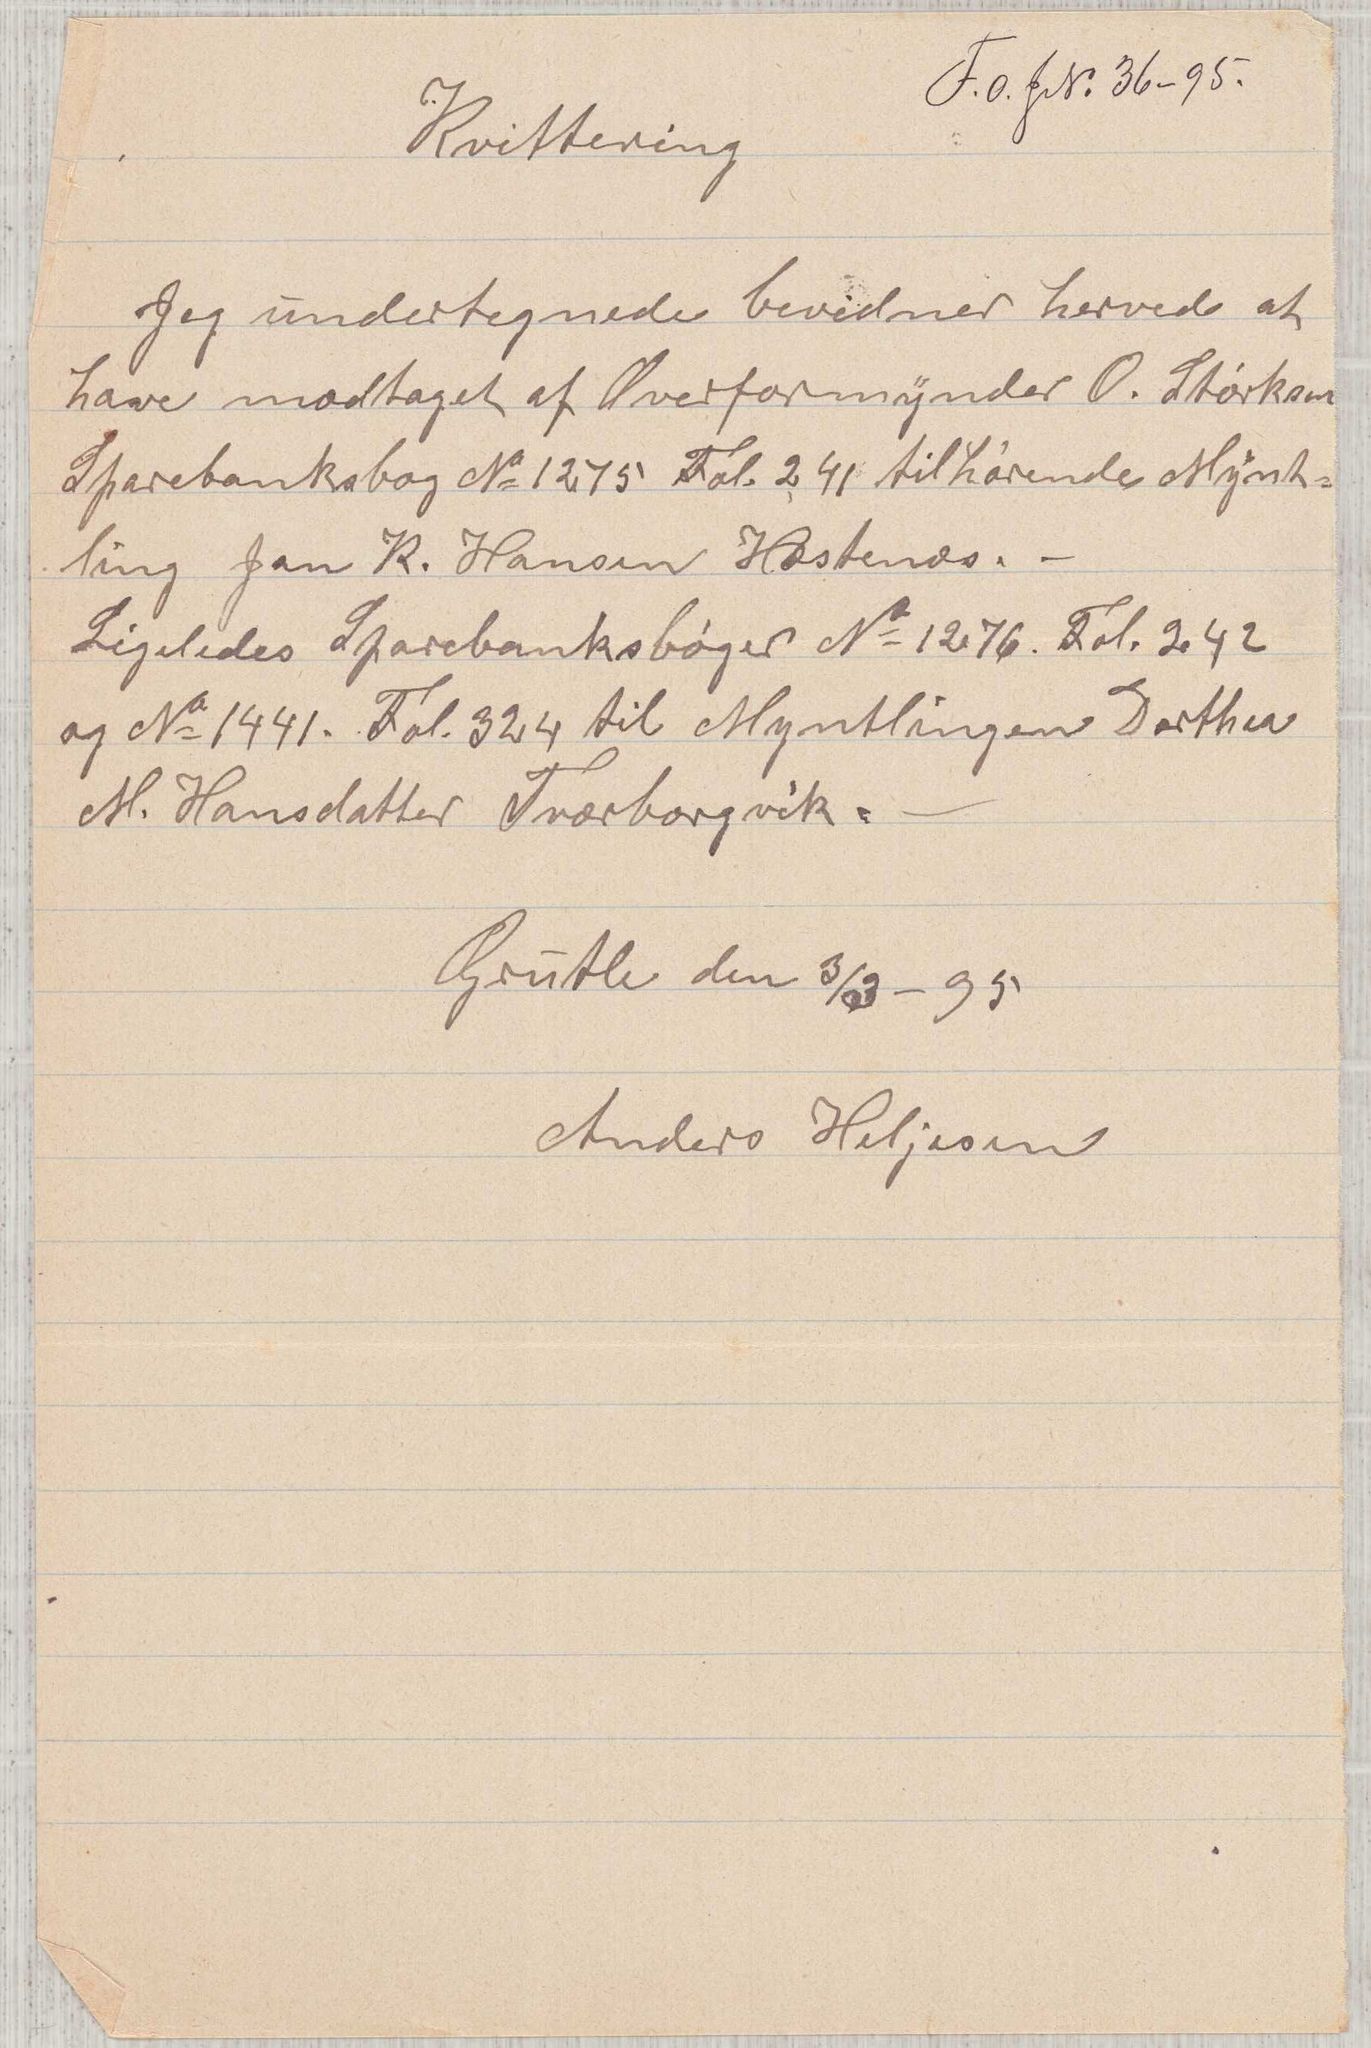 F. o. JN. 36-95.
Kvittering
Jeg undertegnede bevidner herved at
have modtaget af Overformynder O. Størksen
Sparebanksbog No 1275 Fol. 241 tilhørende Mynt-
ling Jan K. Hansen Hæstenæs. -
Ligeledes Sparebanksbøger No 1276. Fol. 242
og No 1441. Fol. 324 til Myntlingen Dorthea
M. Hansdatter Tværborgvik. -
Grutle den 3/3 - 95
Anders Heljesen